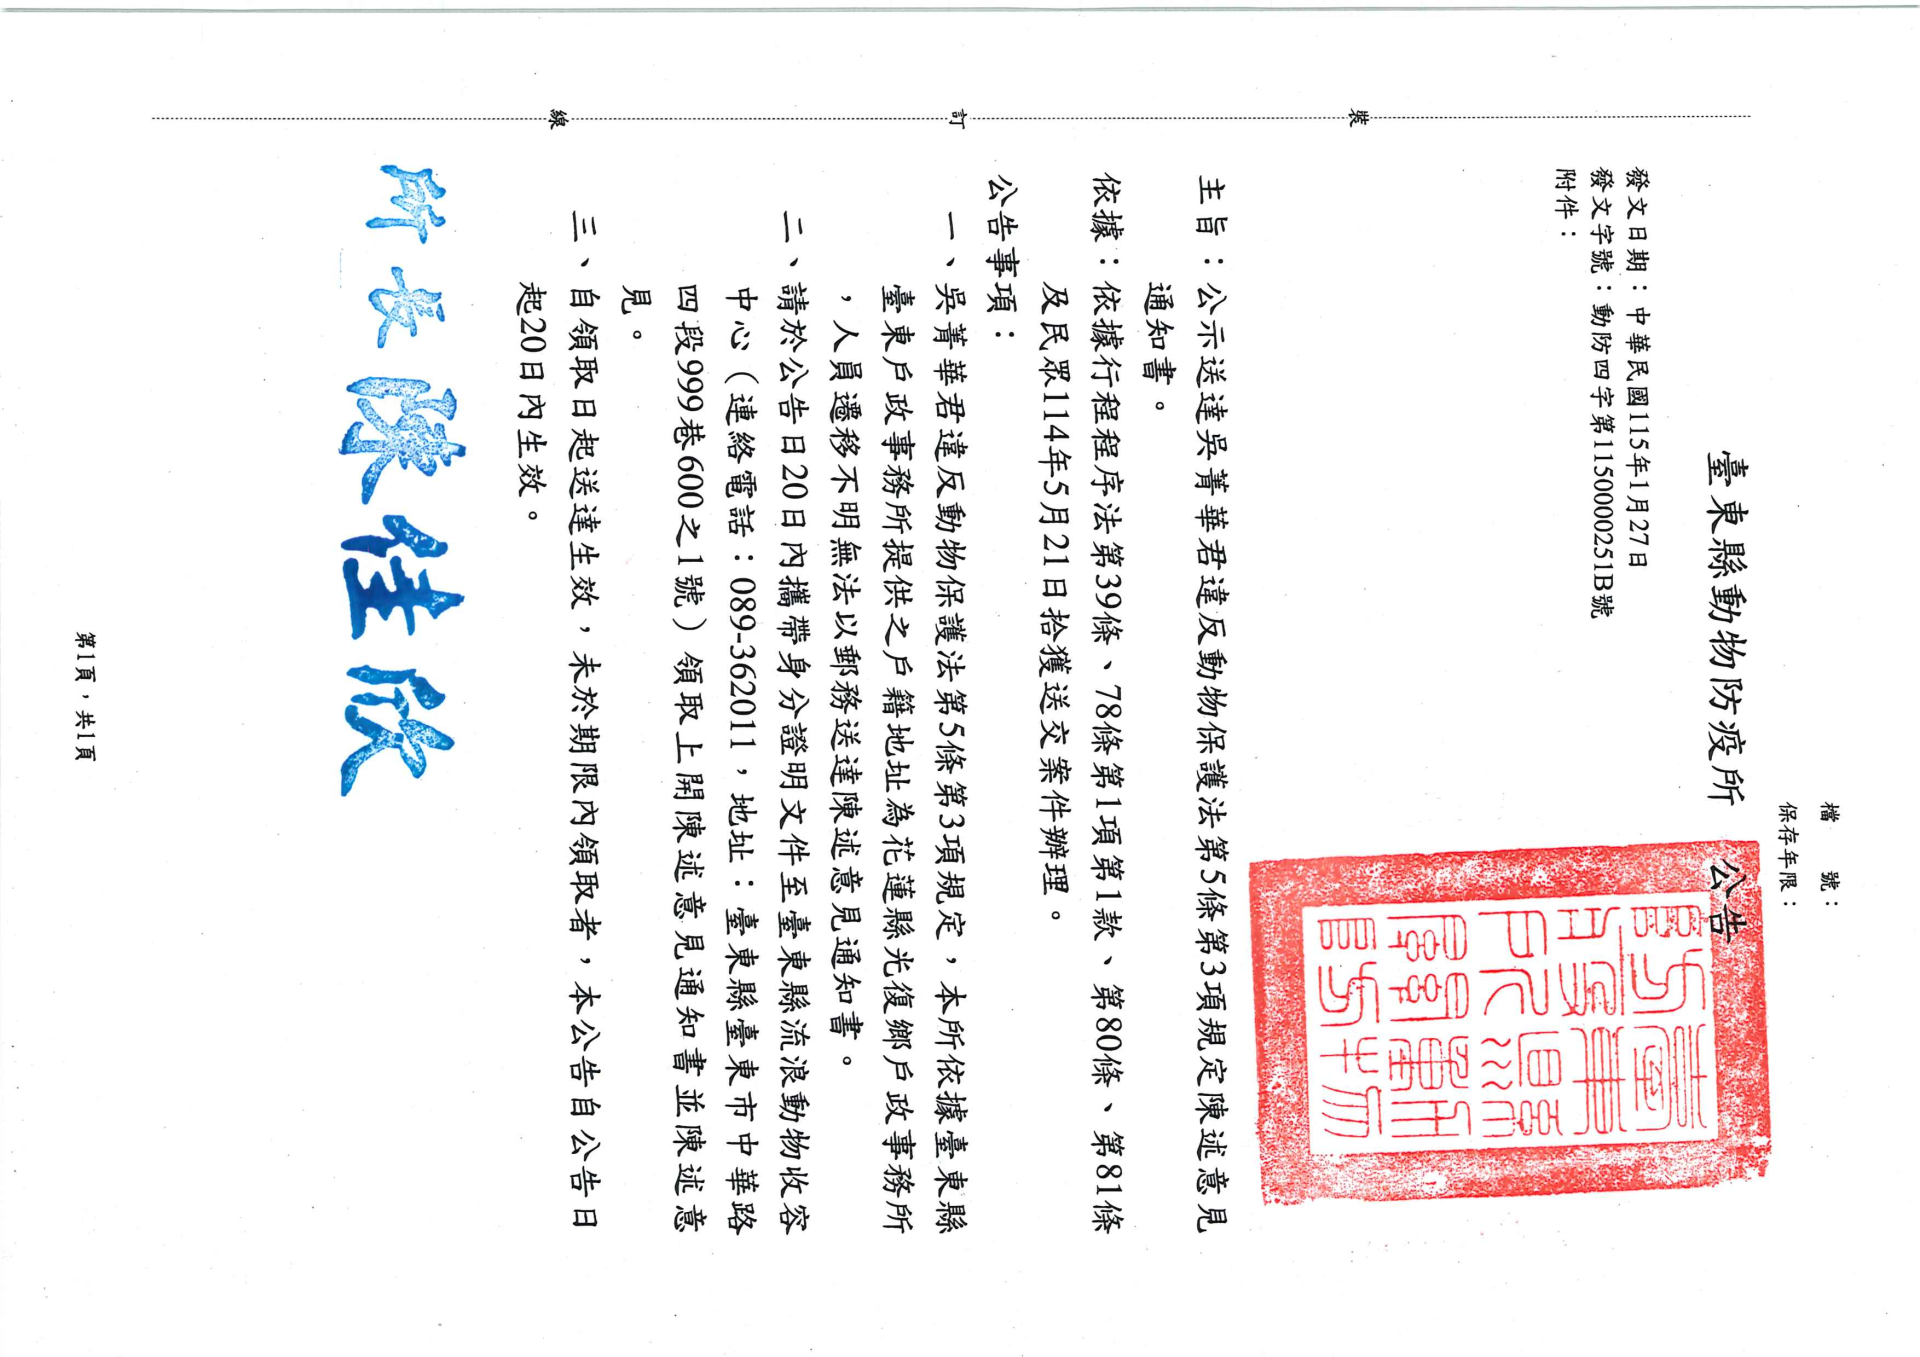 檔　　號：
保存年限：
臺東縣動物防疫所　公告
發文日期：中華民國115年1月27日
發文字號：動防四字第1150000251B號
附件：
主旨：公示送達吳菁華君違反動物保護法第5條第3項規定陳述意見
通知書。
依據：依據行程程序法第39條、78條第1項第1款、第80條、第81條
及民眾114年5月21日拾獲送交案件辦理。
公告事項：
一、吳菁華君違反動物保護法第5條第3項規定，本所依據臺東縣
臺東戶政事務所提供之戶籍地址為花蓮縣光復鄉戶政事務所
，人員遷移不明無法以郵務送達陳述意見通知書。
二、請於公告日20日內攜帶身分證明文件至臺東縣流浪動物收容
中心（連絡電話：089-362011，地址：臺東縣臺東市中華路
四段999巷600之1號）領取上開陳述意見通知書並陳述意
見。
三、自領取日起送達生效，未於期限內領取者，本公告自公告日
起20日內生效。
所長陳佳欣
裝
訂
線
第1頁，共1頁